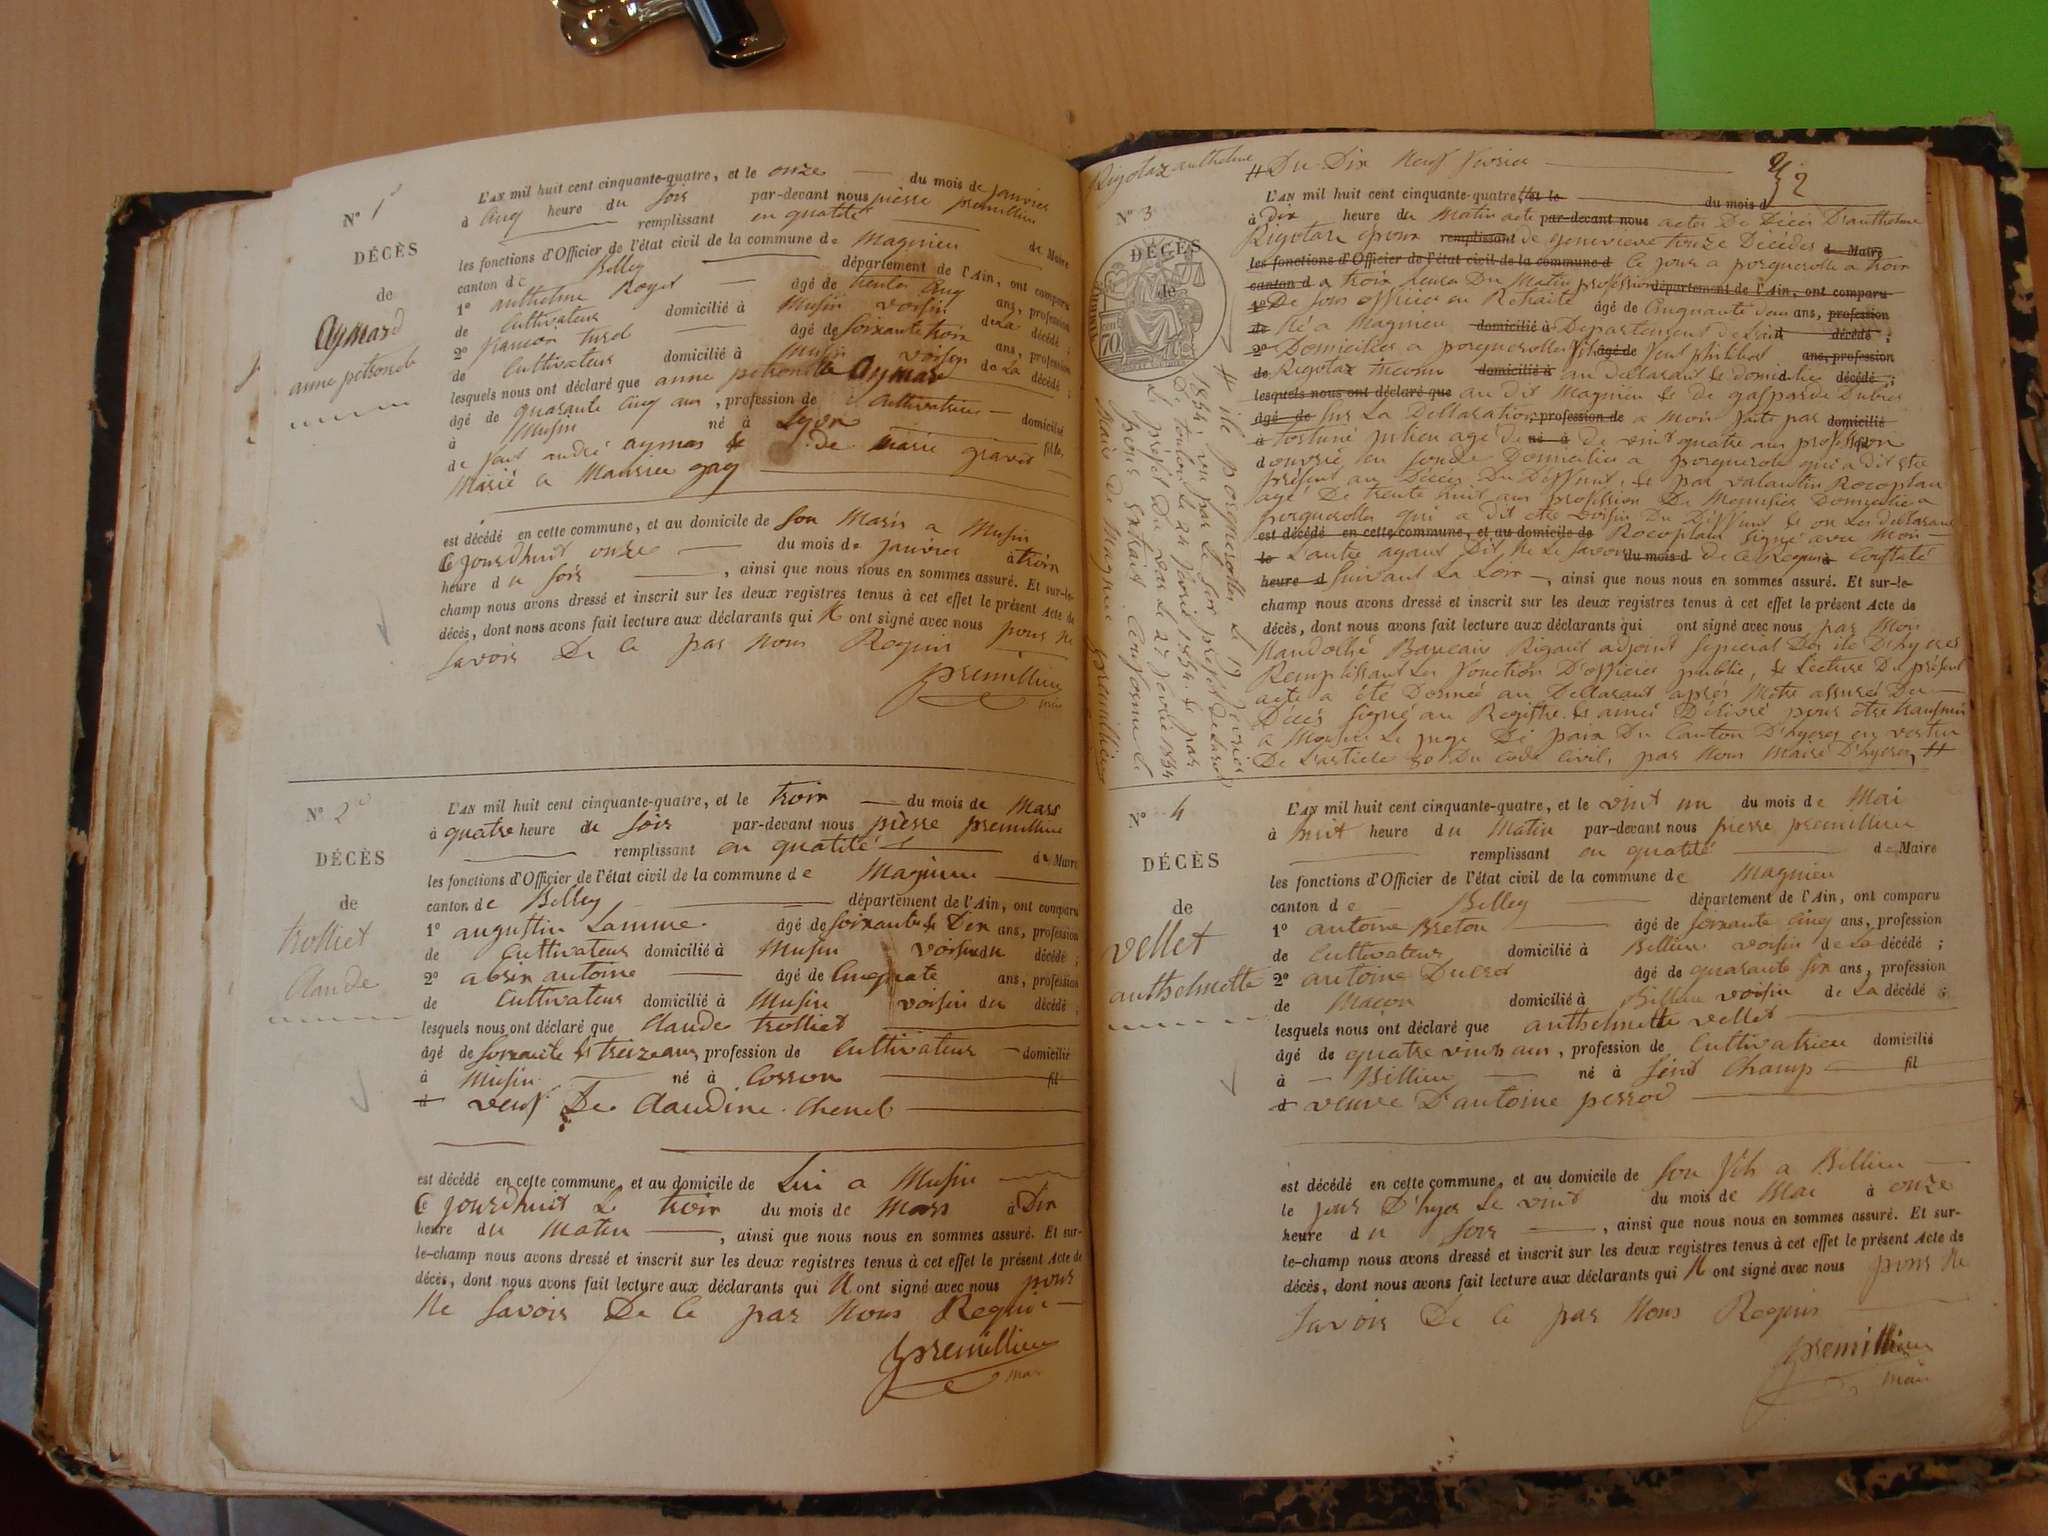 N° 1
DÉCÈS
de
Aymard
anne petronele
L'AN mil huit cent cinquante-quatre, et le onze du mois de janvier
à Cinq heure du soir par-devant nous pierre premillieu
remplissant en qualité de Maire
les fonctions d'Officier de l'état civil de la commune de Magnieu
canton de Belley département de l'Ain, ont comparu
1° anthelme Roget âgé de trente cinq ans, profession
de Cultivateur domicilié à Musin voisin de la décédé ;
2° âgé de soixante trois ans, profession
de Cultivateur domicilié à Musin voisin de La décédé ;
lesquels nous ont déclaré que anne petronelle Aymard
âgé de quarante cinq ans, profession de Cultivatrice domicilié
à Musin né à Lyon fille
de andré aymar & de marie
Marié a Maurice gay
est décédé en cette commune, et au domicile de son Maris a Musin
Ce jourdhuit onze du mois de janvier à trois
heure du soir, ainsi que nous nous en sommes assuré. Et sur-le-
champ nous avons dressé et inscrit sur les deux registres tenus à cet effet le présent Acte de
décès, dont nous avons fait lecture aux déclarants qui N ont signé avec nous pour ne
savoir De Ce par Nous Requis
premillieu
N° 2
DÉCÈS
de
trolliet
Claude
L'AN mil huit cent cinquante-quatre, et le trois du mois de Mars
à quatre heure du soir par-devant nous pierre premillieu
remplissant en qualité de Maire
les fonctions d'Officier de l'état civil de la commune de Magnieu
canton de Belley département de l'Ain, ont comparu
1° augustin Lamure âgé de soixante & Dix ans, profession
de Cultivateur domicilié à Musin voisin du décédé ;
2° antoine âgé de Cinquate ans, profession
de Cultivateur domicilié à Musin voisin du décédé ;
lesquels nous ont déclaré que Claude trolliet
âgé de soixante & treize ans, profession de Cultivateur domicilié
à Musin né à Cosson fil
d veuf De Claudine Chenel
est décédé en cette commune et au domicile de Lui a Musin
Ce jourdhuit Le trois du mois de Mars à Dix
heure du Matin, ainsi que nous nous en sommes assuré. Et sur-
le-champ nous avons dressé et inscrit sur les deux registres tenus à cet effet le présent Acte de
décès, dont nous avons fait lecture aux déclarants qui N ont signé avec nous pour
Ne savoir De Ce par Nous Requis
premillieu
Rigotaz anthelme
# Du Dix Neuf Fevrier
N° 3
DÉCÈS
de
L'AN mil huit cent cinquante-quatre, et le du mois d
à Dix heure du Matin acte par-devant nous acte De Décès D'anthelme
Rigotaz époux remplissant de genevieve Décédé de Maire
les fonctions d'Officier de l'état civil de la commune d Ce jour a porquerolle a trois
canton d a trois heure Du Matin profession département de l'Ain, ont comparu
1° De sous officier en Retraite âgé de Cinquante deux ans, profession
de Né a Magnieu domicilié à Departement de Lain décédé ;
2° Domicilier a porquerolles fils âgé de Feut philibert ans, profession
de Rigotaz domicilié à au déclarant & domicilié décédé ;
lesquels nous ont déclaré que au dit Magnieu & de gasparde Dubier
âgé de sur La Declaration profession de a moin faite par domicilié
à fortuné julien age De né à de vint quatre ans profession
douvrié en soude Domicilié a porquerole qui a dit etre
présent au Décès Du Déffunt, & par valantin Rocoplan
agé De trente huit ans profession De Menusier Domicilié a
porquerolles qui a dit etre voisin Du Déffunt & on Les déclarant
est décédé en cette commune, et au domicile de Rocoplan signé avec Mon
le L'autre ayant Dit Ne Le savoir du mois d de ce Requis à Constaté
heure d Suivant La Loix, ainsi que nous nous en sommes assuré. Et sur-le-
champ nous avons dressé et inscrit sur les deux registres tenus à cet effet le présent Acte de
décès, dont nous avons fait lecture aux déclarants qui ont signé avec nous par Mon
Baucaire Rigaut adjoint special Des ile D'hyeres
Remplissant Les Fonction D'officier publié, & Lecture Du présent
acte a été Donnée au Déclarant après M'etre assuré Du
Décès signé au Registre & ainsi Délivré pour être transmis
a Monsieur Le juge De paix Du Canton D'hyeres en vertu
De L'article 80 Du Code Civil, par Nous Maire D'hyeres #
# ile porquerolles le 19 fevrier
1854, vu par Le Sous préfet
De toulon Le 24 1854 & par
Le préfet Du var Le 27 fevrier 1854
pour Extrait Conforme Le
Maire de Magnieu premillieu
N° 4
DÉCÈS
de
vellet
anthelmette
L'AN mil huit cent cinquante-quatre, et le vint un du mois de Mai
à huit heure du Matin par-devant nous pierre premillieu
remplissant en qualité de Maire
les fonctions d'Officier de l'état civil de la commune de Magnieu
canton de Belley département de l'Ain, ont comparu
1° antoine Breton âgé de soixante cinq ans, profession
de Cultivateur domicilié à Billieu voisin de La décédé ;
2° antoine Ducrot âgé de quarante six ans, profession
de Maçon domicilié à Billieu voisin de La décédé ;
lesquels nous ont déclaré que anthelmette vellet
âgé de quatre vints ans, profession de Cultivatrieu domicilié
à Billieu né à Sint Champ fil
d veuve D'antoine perrod
est décédé en cette commune et au domicile de Son fils a Billieu
le jour D'hyer Le vint du mois de Mai à onze
heure du soir, ainsi que nous nous en sommes assuré. Et sur-
le-champ nous avons dressé et inscrit sur les deux registres tenus à cet effet le présent Acte de
décès, dont nous avons fait lecture aux déclarants qui N ont signé avec nous pour Ne
savoir De Ce par Nous Requis
premillieu